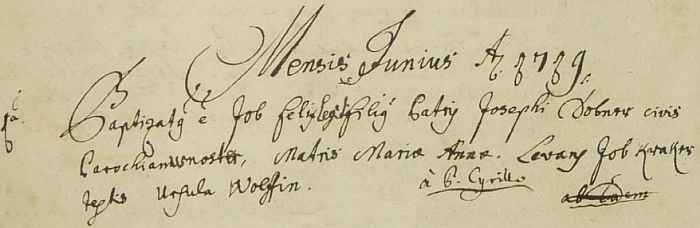 Mensis Junius A. 1719.
Baptizatq ē Job Felix legit. filiq Patris Josephi Dobner civis
Parochianus noster, Matris Mariæ Annæ. Levans Job Kraker
testis Ursula Wolffin. à P. Cyrillo ab Eadem